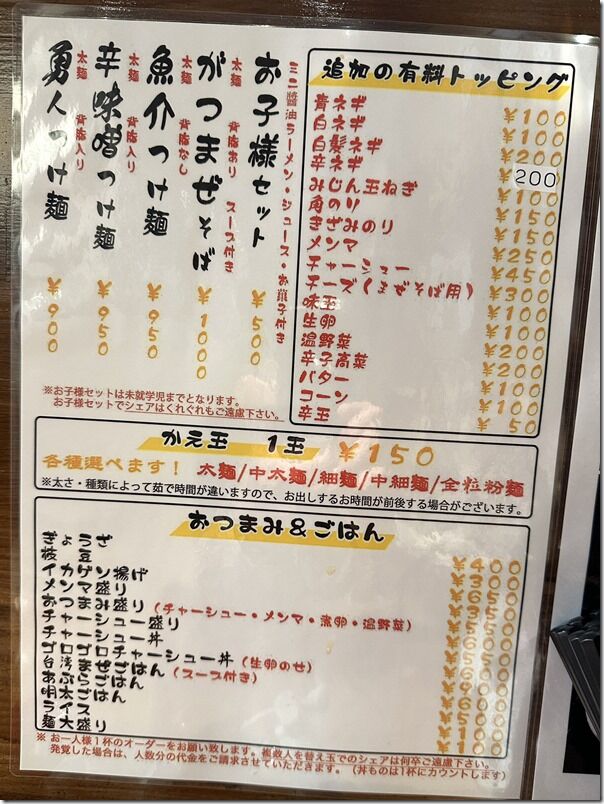 お子様セット ¥500
ミニ醬油ラーメン・ジュース・お菓子付き
がつまぜそば ¥1000
太麺 背脂あり スープ付き
魚介つけ麺 ¥950
太麺 背脂なし
辛味噌つけ麺 ¥950
太麺 背脂入り
勇人つけ麺 ¥900
太麺 背脂入り
※お子様セットは未就学児までとなります。
お子様セットでシェアはくれぐれもご遠慮下さい。
追加の有料トッピング
青ネギ ¥100
白ネギ ¥100
白髪ネギ ¥200
辛ネギ ¥200
みじん玉ねぎ ¥100
角のり ¥150
きざみのり ¥150
メンマ ¥250
チャーシュー ¥450
チーズ(まぜそば用) ¥300
味玉 ¥100
生卵 ¥100
温野菜 ¥200
辛子高菜 ¥200
バター ¥100
コーン ¥100
辛玉 ¥50
かえ玉 1玉 ¥150
各種選べます! 太麺/中太麺/細麺/中細麺/全粒粉麺
※太さ・種類によって茹で時間が違いますので、お出しするお時間が前後する場合がございます。
おつまみ&ごはん
ぎょうざ ¥400
枝豆 ¥300
イカゲソ揚げ
メンマ盛り
おつまみ盛り(チャーシュー・メンマ・煮卵・温野菜)
チャーシュー盛り
チャーシュー丼
ゴロゴロチャーシュー丼(生卵のせ)
台湾まぜごはん(スープ付き)
あぶらごはん
明太ごはん
ライス
麺大盛り ¥100
※ お一人様1杯のオーダーをお願い致します。複数人を替え玉でのシェアは何卒ご遠慮下さい。
発覚した場合は、人数分の代金をご請求させていただきます。(丼ものは1杯にカウントします)